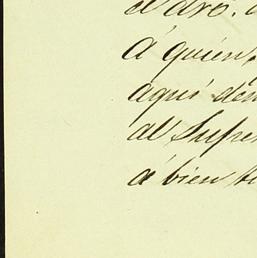 á quien
aquí de
al Supre
á bien t